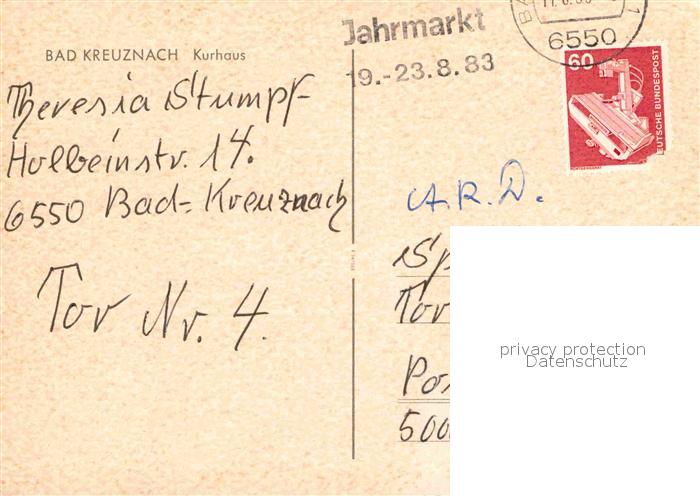 BAD KREUZNACH Kurhaus
Theresia Stumpf-
Holbeinstr. 14.
6550 Bad-Kreuznach
Tor Nr. 4.
Jahrmarkt
19.-23.8.83
6550
60
DEUTSCHE BUNDESPOST
A.R.D.
Tor
500
privacy protection
Datenschutz